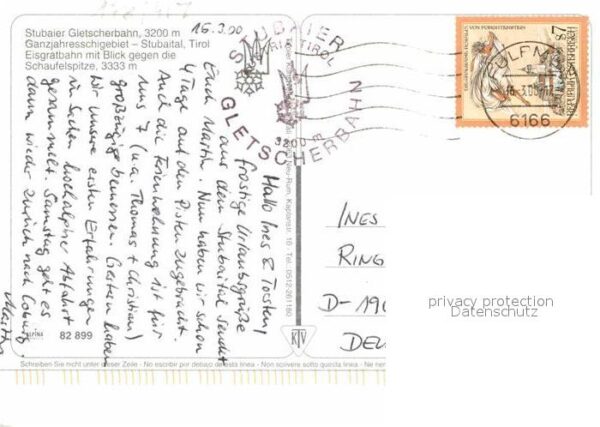 Stubaier Gletscherbahn, 3200 m
Ganzjahresschigebiet – Stubaital, Tirol
Eisgratbahn mit Blick gegen die
Schaufelspitze, 3333 m
16.3.00
Hallo Ines & Torsten,
frostige Urlaubsgrüße
aus dem Stubaital sendet
Euch Martin. Nun haben wir schon
4 Tage auf den Pisten zugebracht.
Auch die Ferienwohnung ist für
uns 7 (u.a. Thomas + Christian)
großzügig bemessen. Gestern haben
wir unsere ersten Erfahrungen
in Sachen hochalpiner Abfahrt
gesammelt. Samstag geht es
dann wieder zurück nach Coburg.
Martin
STUBAIER
GLETSCHERBAHN
3200 m
6166
INES
RING
D-190
DEU
privacy protection
Datenschutz
82 899
KTV
Neu-Rum, Kaplanstr. 16 - Tel. 0512-261160
Schreiben Sie nicht unter dieser Zeile - No escribir por debajo de esta línea - Non scrivere sotto questa linea -